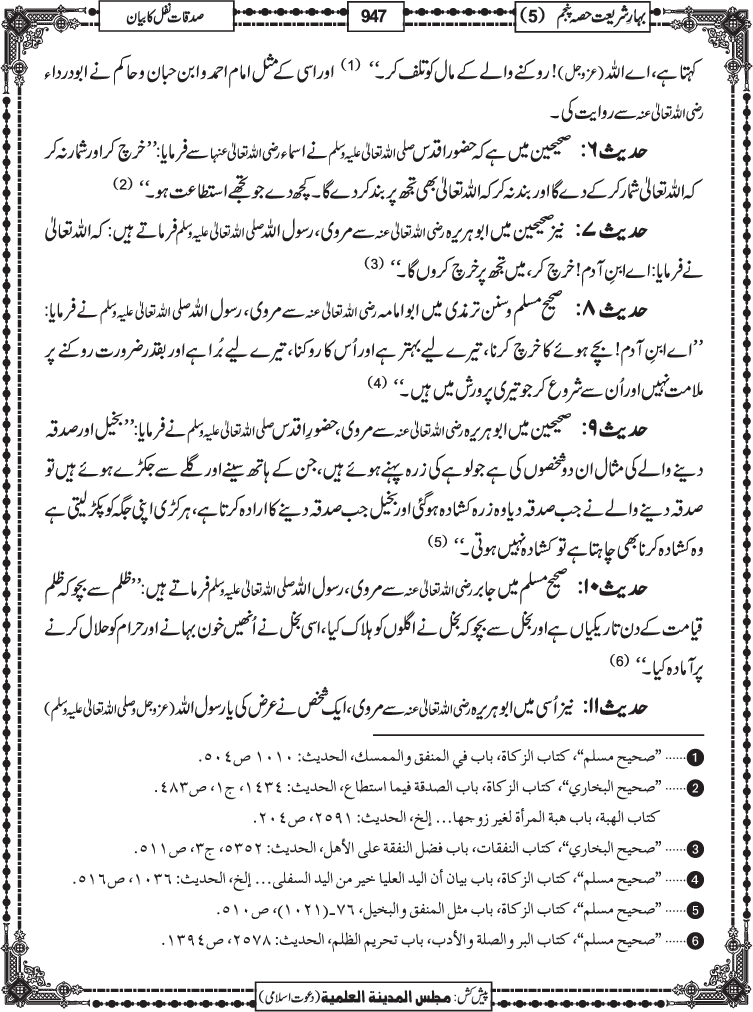 بہارِ شریعت حصہ پنجم (5)
947
صدقات نفل کا بیان
کہتا ہے، اے اللہ (عزوجل)! روکنے والے کے مال کو تلف کر۔‘‘ (1) اور اسی کے مثل امام احمد و ابن حبان و حاکم نے ابودرداء
رضی اللہ تعالیٰ عنہ سے روایت کی۔
حدیث ۶: صحیحین میں ہے کہ حضورِ اقدس صلی اللہ تعالیٰ علیہ وسلم نے اسماء رضی اللہ تعالیٰ عنہا سے فرمایا: ’’خرچ کر اور شمار نہ کر
کہ اللہ تعالیٰ شمار کر کے دے گا اور بند نہ کر کہ اللہ تعالیٰ بھی تجھ پر بند کر دے گا۔ کچھ دے جو تجھے استطاعت ہو۔‘‘ (2)
حدیث ۷: نیز صحیحین میں ابوہریرہ رضی اللہ تعالیٰ عنہ سے مروی، رسول اللہ صلی اللہ تعالیٰ علیہ وسلم فرماتے ہیں: کہ اللہ تعالیٰ
نے فرمایا: اے ابنِ آدم! خرچ کر، میں تجھ پر خرچ کروں گا۔‘‘ (3)
حدیث ۸: صحیح مسلم و سنن ترمذی میں ابوامامہ رضی اللہ تعالیٰ عنہ سے مروی، رسول اللہ صلی اللہ تعالیٰ علیہ وسلم نے فرمایا:
’’اے ابنِ آدم! بچے ہوئے کا خرچ کرنا، تیرے لیے بہتر ہے اور اُس کا روکنا، تیرے لیے بُرا ہے اور بقدر ضرورت روکنے پر
ملامت نہیں اور اُن سے شروع کر جو تیری پرورش میں ہیں۔‘‘ (4)
حدیث ۹: صحیحین میں ابوہریرہ رضی اللہ تعالیٰ عنہ سے مروی، حضورِ اقدس صلی اللہ تعالیٰ علیہ وسلم نے فرمایا: ’’بخیل اور صدقہ
دینے والے کی مثال ان دو شخصوں کی ہے جو لوہے کی زرہ پہنے ہوئے ہیں، جن کے ہاتھ سینے اور گلے سے جکڑے ہوئے ہیں تو
صدقہ دینے والے نے جب صدقہ دیا وہ زرہ کشادہ ہوگئی اور بخیل جب صدقہ دینے کا ارادہ کرتا ہے، ہر کڑی اپنی جگہ کو پکڑ لیتی ہے
وہ کشادہ کرنا بھی چاہتا ہے تو کشادہ نہیں ہوتی۔‘‘ (5)
حدیث ۱۰: صحیح مسلم میں جابر رضی اللہ تعالیٰ عنہ سے مروی، رسول اللہ صلی اللہ تعالیٰ علیہ وسلم فرماتے ہیں: ’’ظلم سے بچو کہ ظلم
قیامت کے دن تاریکیاں ہے اور بخل سے بچو کہ بخل نے اگلوں کو ہلاک کیا، اسی بخل نے اُنھیں خون بہانے اور حرام کو حلال کرنے
پر آمادہ کیا۔‘‘ (6)
حدیث ۱۱: نیز اُسی میں ابوہریرہ رضی اللہ تعالیٰ عنہ سے مروی، ایک شخص نے عرض کی یا رسول اللہ (عزوجل و صلی اللہ تعالیٰ علیہ وسلم)
1 ...... ”صحيح مسلم“، كتاب الزكاة، باب في المنفق والممسك، الحديث: ١٠١٠ ص٥٠٤.
2 ...... ”صحيح البخاري“، كتاب الزكاة، باب الصدقة فيما استطاع، الحديث: ١٤٣٤، ج١، ص٤٨٣.
كتاب الهبة، باب هبة المرأة لغير زوجها... إلخ، الحديث: ٢٥٩١، ص٢٠٤.
3 ...... ”صحيح البخاري“، كتاب النفقات، باب فضل النفقة على الأهل، الحديث: ٥٣٥٢، ج٣، ص٥١١.
4 ...... ”صحيح مسلم“، كتاب الزكاة، باب بيان أن اليد العليا خير من اليد السفلى... إلخ، الحديث: ١٠٣٦، ص٥١٦.
5 ...... ”صحيح مسلم“، كتاب الزكاة، باب مثل المنفق والبخيل، ٧٦ـ(١٠٢١)، ص٥١٠.
6 ...... ”صحيح مسلم“، كتاب البر والصلة والأدب، باب تحريم الظلم، الحديث: ٢٥٧٨، ص١٣٩٤.
پیش کش: مجلس المدينة العلمية (دعوت اسلامی)